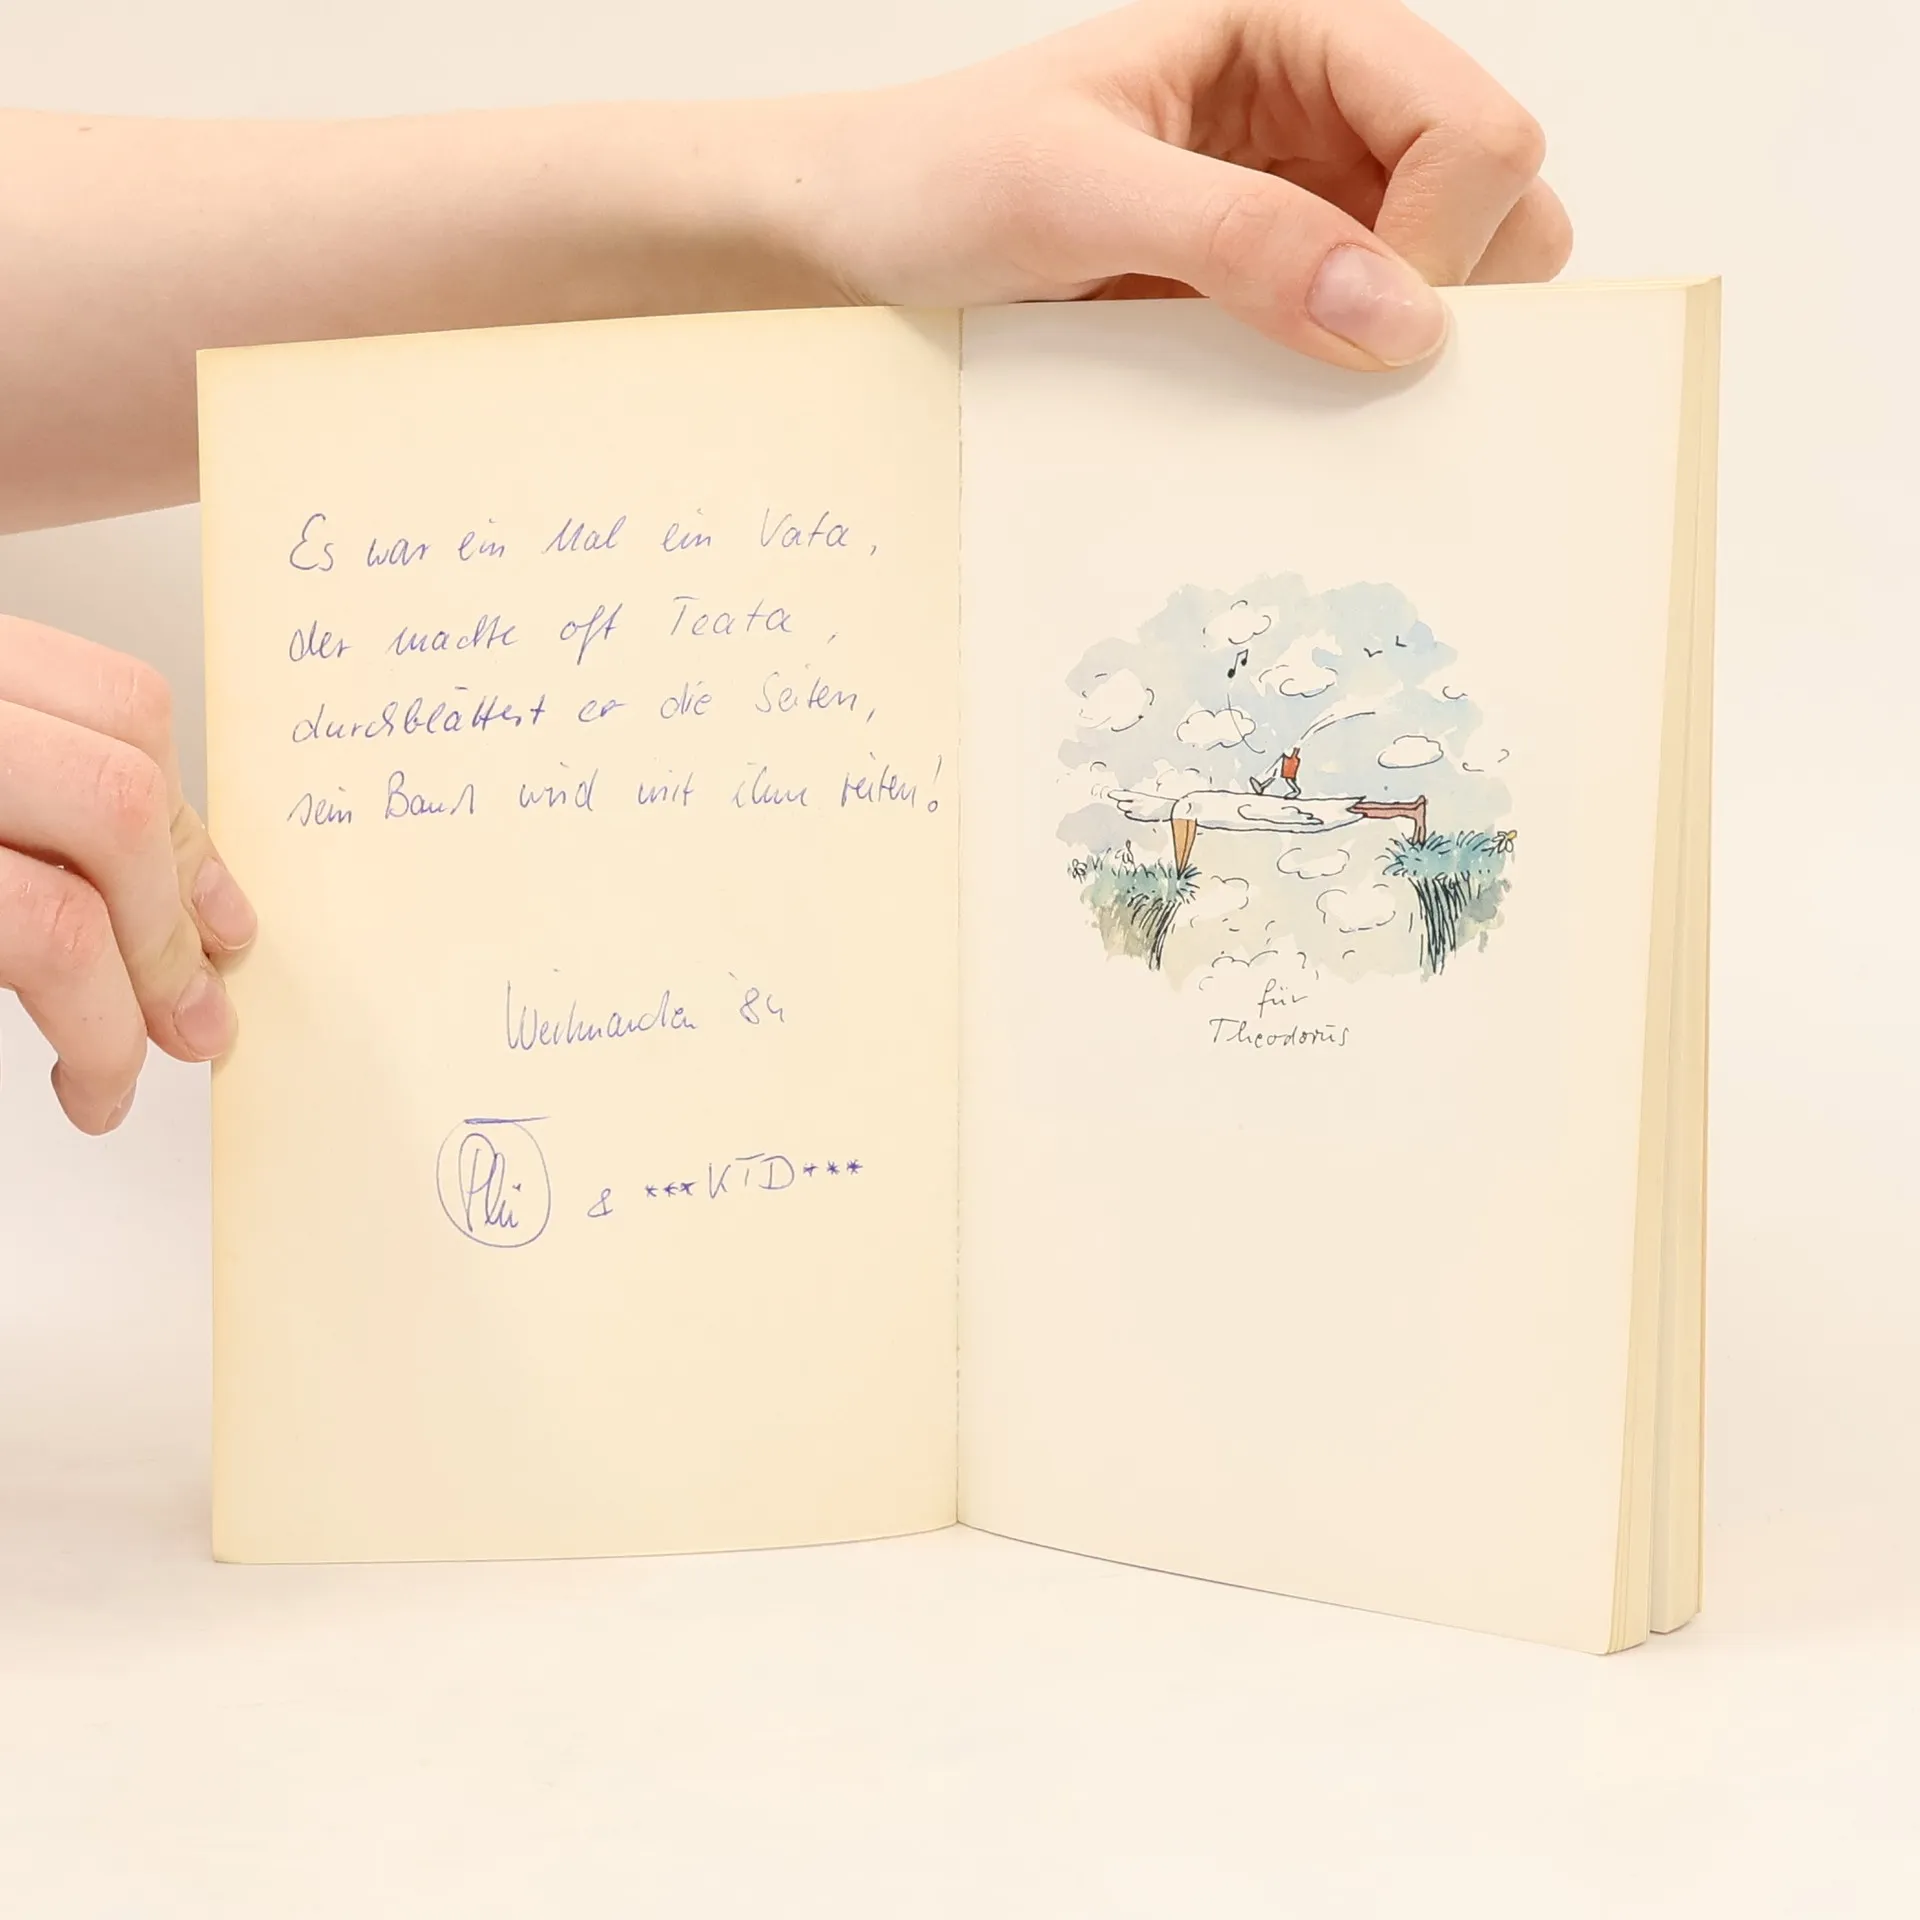 Es war ein Mal ein Vata,
der machte oft Teata,
durchblättert er die Seiten,
sein Bauch wird mit ihm reiten!
Weihnachten '84
& ***KTD***
für
Theodorus